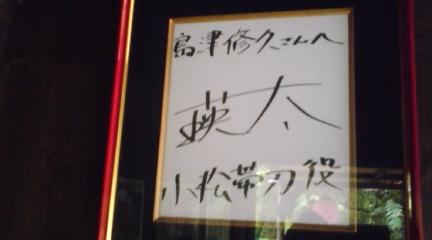 島津修久さんへ
瑛太
小松帯刀役